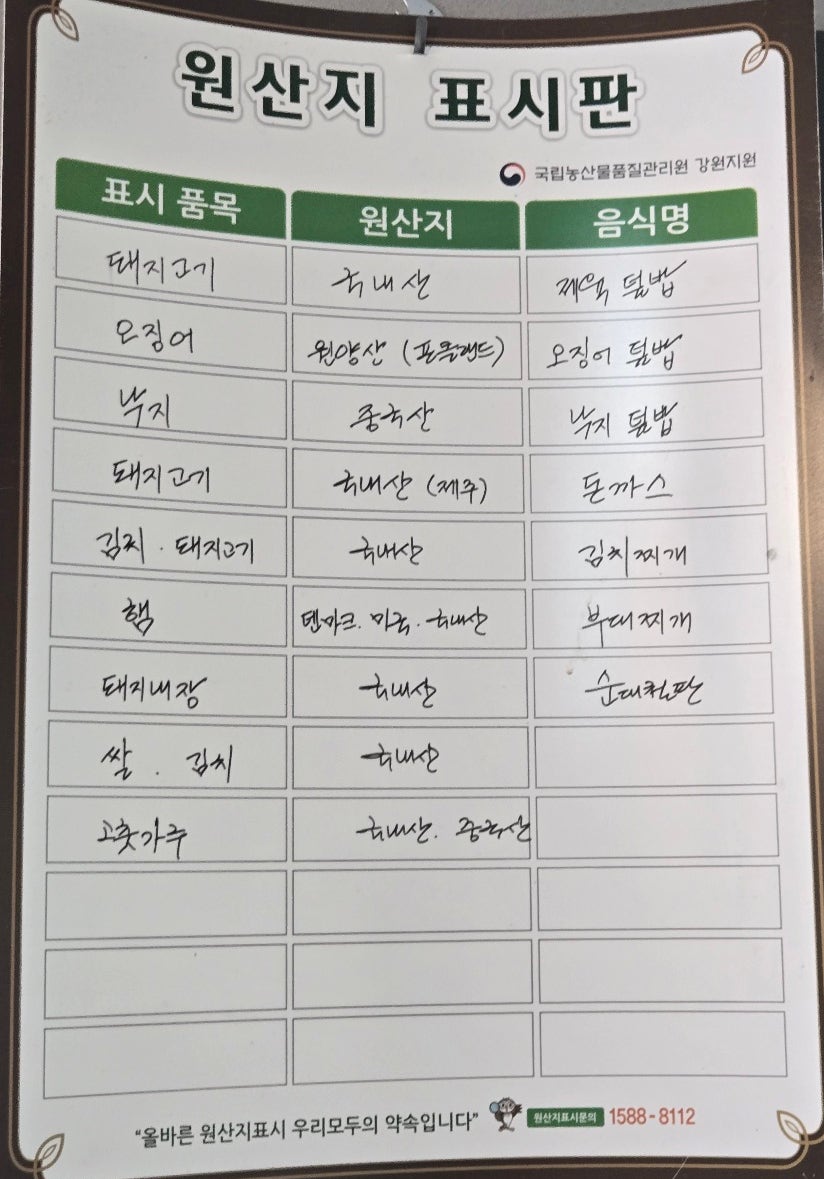 원산지 표시판
국립농산물품질관리원 강원지원
표시 품목 원산지 음식명
돼지고기 국내산 제육 덮밥
오징어 원양산 (포클랜드) 오징어 덮밥
낙지 중국산 낙지 덮밥
돼지고기 국내산 (제주) 돈까스
김치 . 돼지고기 국내산 김치찌개
햄 덴마크. 미국. 국내산 부대찌개
돼지내장 국내산 순대철판
쌀 . 김치 국내산
고춧가루 국내산. 중국산
“올바른 원산지표시 우리모두의 약속입니다” 원산지표시문의 1588-8112